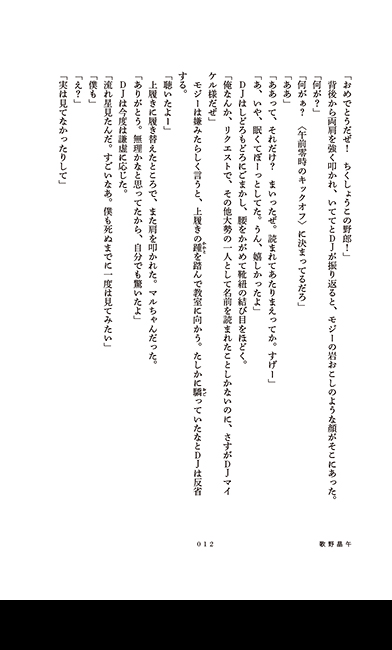 「おめでとうだぜ！　ちくしょうこの野郎！」
　背後から両肩を強く叩かれ、いててとＤＪが振り返ると、モジーの岩おこしのような顔がそこにあった。
「何が？」
「何がぁ？　〈午前零時のキックオフ〉に決まってるだろ」
「ああ」
「ああって、それだけ？　まいったぜ。読まれてあたりまえってか。すげー」
「あ、いや、眠くてぼーっとしてた。うん、嬉しかったよ」
　ＤＪはしどろもどろにごまかし、腰をかがめて靴紐の結び目をほどく。
「俺なんか、リクエストで、その他大勢の一人として名前を読まれたことしかないのに、さすがＤＪマイ
ケル様だぜ」
　モジーは嫌みたらしく言うと、上履きの踵を踏んで教室に向かう。たしかに驕っていたなとＤＪは反省
する。
「聴いたよー」
　上履きに履き替えたところで、また肩を叩かれた。マルちゃんだった。
「ありがとう。無理かなと思ってたから、自分でも驚いたよ」
　ＤＪは今度は謙虚に応じた。
「流れ星見たんだ。すごいなあ。僕も死ぬまでに一度は見てみたい」
「僕も」
「え？」
「実は見てなかったりして」
歌野晶午
012